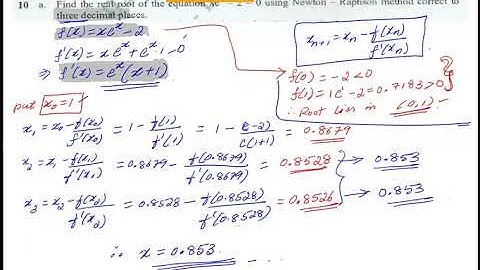 10 a. Find the real root of the equation xeˣ − 2 = 0 using Newton – Raphson method correct to
three decimal places.
f(x) = xeˣ − 2
f'(x) = x eˣ + eˣ·1 − 0
⇒ f'(x) = eˣ(x+1)
xₙ₊₁ = xₙ − f(xₙ)/f'(xₙ)
f(0) = −2 < 0
f(1) = 1e¹ − 2 = 0.7183 > 0
∴ Root lies in (0,1)
put x₀ = 1
x₁ = x₀ − f(x₀)/f'(x₀) = 1 − f(1)/f'(1) = 1 − (e−2)/(e(1+1)) = 0.8679
x₂ = x₁ − f(x₁)/f'(x₁) = 0.8679 − f(0.8679)/f'(0.8679) = 0.8528 → 0.853
x₃ = x₂ − f(x₂)/f'(x₂) = 0.8528 − f(0.8528)/f'(0.8528) = 0.8526 → 0.853
∴ x = 0.853